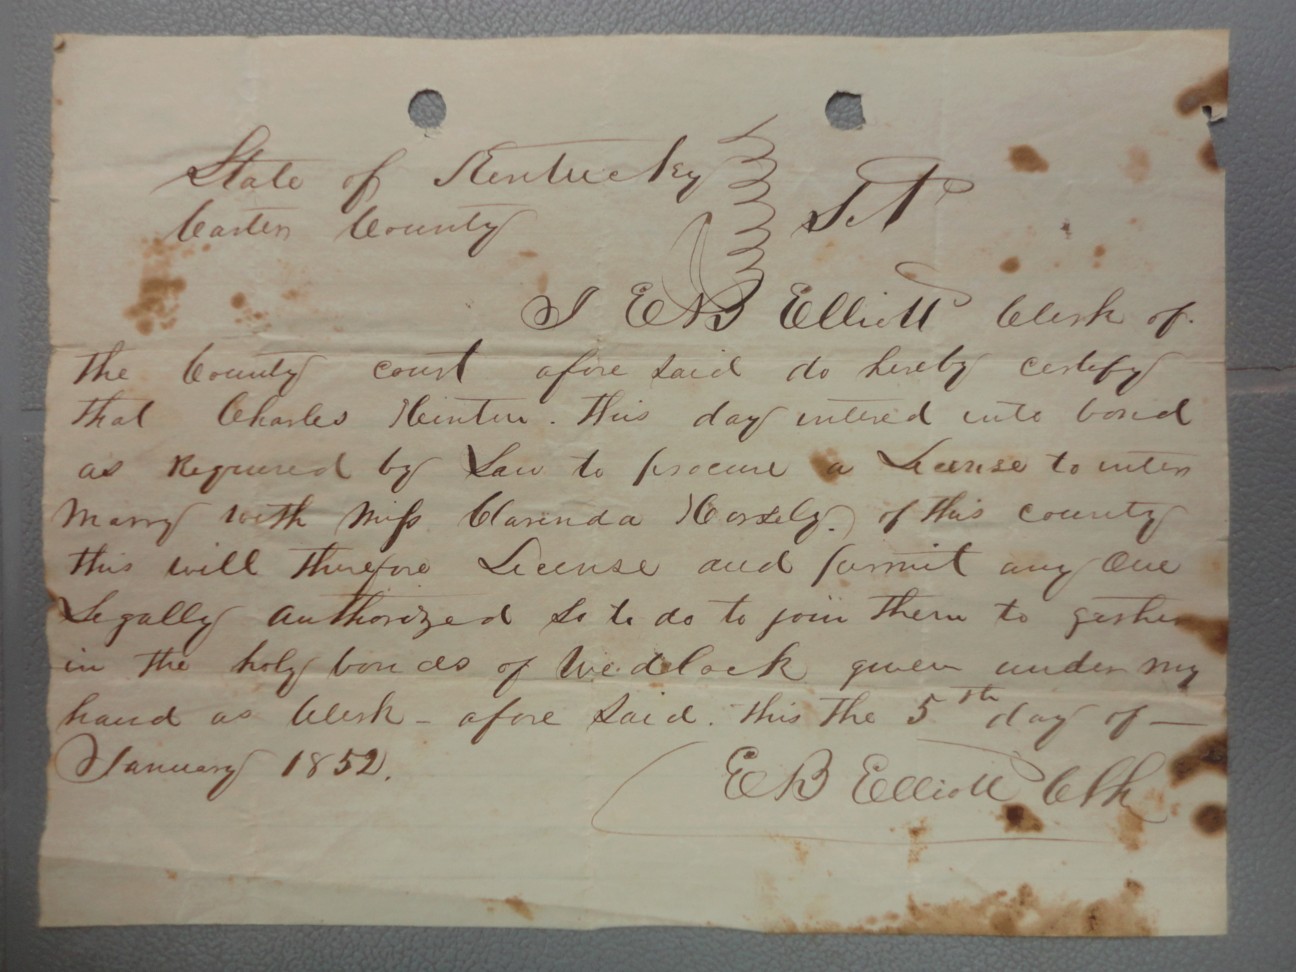 State of Kentucky
Carter County Sct
I E B Elliott Clerk of
the County court afore said do hereby certify
that Charles Hinton. this day intered into bond
as Required by Law to procure a License to inter
Marry with Miss Clarinda Horsely. of this county
this will therefore License and permit any One
Legally authorized so to do to join them to gether
in the holy bonds of Wedlock given under my
hand as Clerk - afore said. this the 5th day of —
January 1852.
E B Elliott Clk